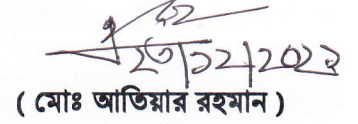 ২৩/১২/২০২৪
( মোঃ আতিয়ার রহমান )